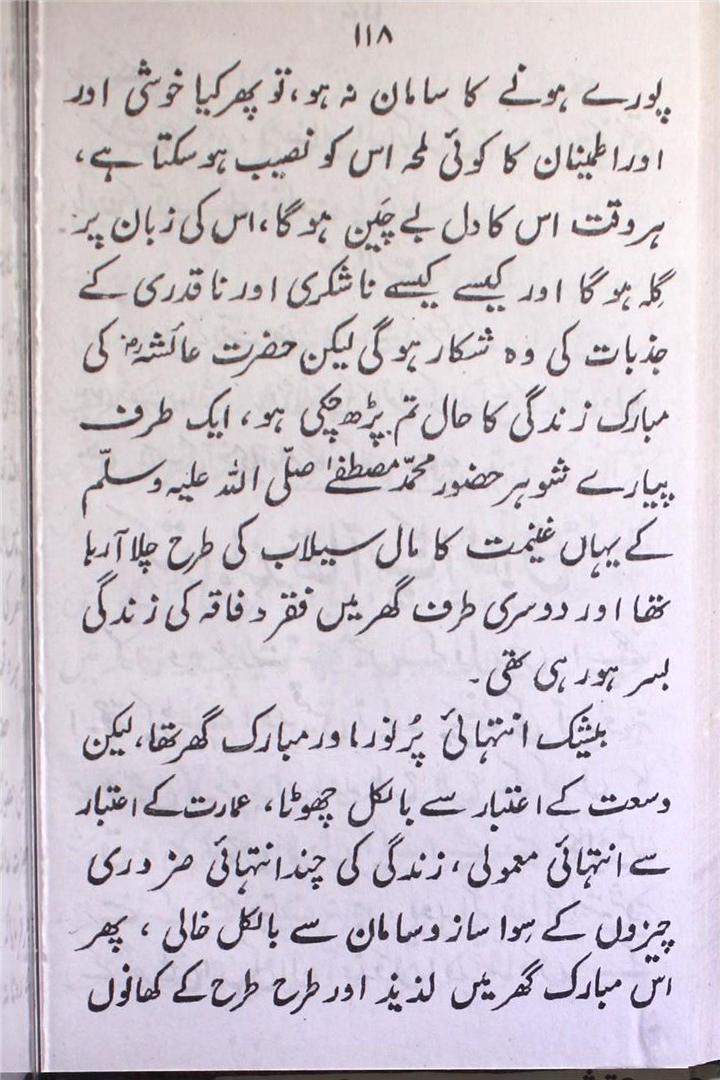 ۱۱۸
پورے ہونے کا سامان نہ ہو، تو پھر کیا خوشی اور
اور اطمینان کا کوئی لمحہ اس کو نصیب ہو سکتا ہے،
ہر وقت اس کا دل بے چَین ہو گا، اس کی زبان پر
گِلہ ہو گا اور کیسے کیسے ناشکری اور ناقدری کے
جذبات کی وہ شکار ہو گی لیکن حضرت عائشہؓ کی
مبارک زندگی کا حال تم پڑھ چکی ہو، ایک طرف
پیارے شوہر حضور محمّد مصطفےٰ صلّی اللہ علیہ وسلّم
کے یہاں غنیمت کا مال سیلاب کی طرح چلا آ رہا
تھا اور دوسری طرف گھر میں فقر و فاقہ کی زندگی
بسر ہو رہی تھی۔
بیشک انتہائی پُر نور اور مبارک گھر تھا، لیکن
وسعت کے اعتبار سے بالکل چھوٹا، عمارت کے اعتبار
سے انتہائی معمولی، زندگی کی چند انتہائی ضروری
چیزوں کے سِوا ساز و سامان سے بالکل خالی، پھر
اس مبارک گھر میں لذیذ اور طرح طرح کے کھانوں